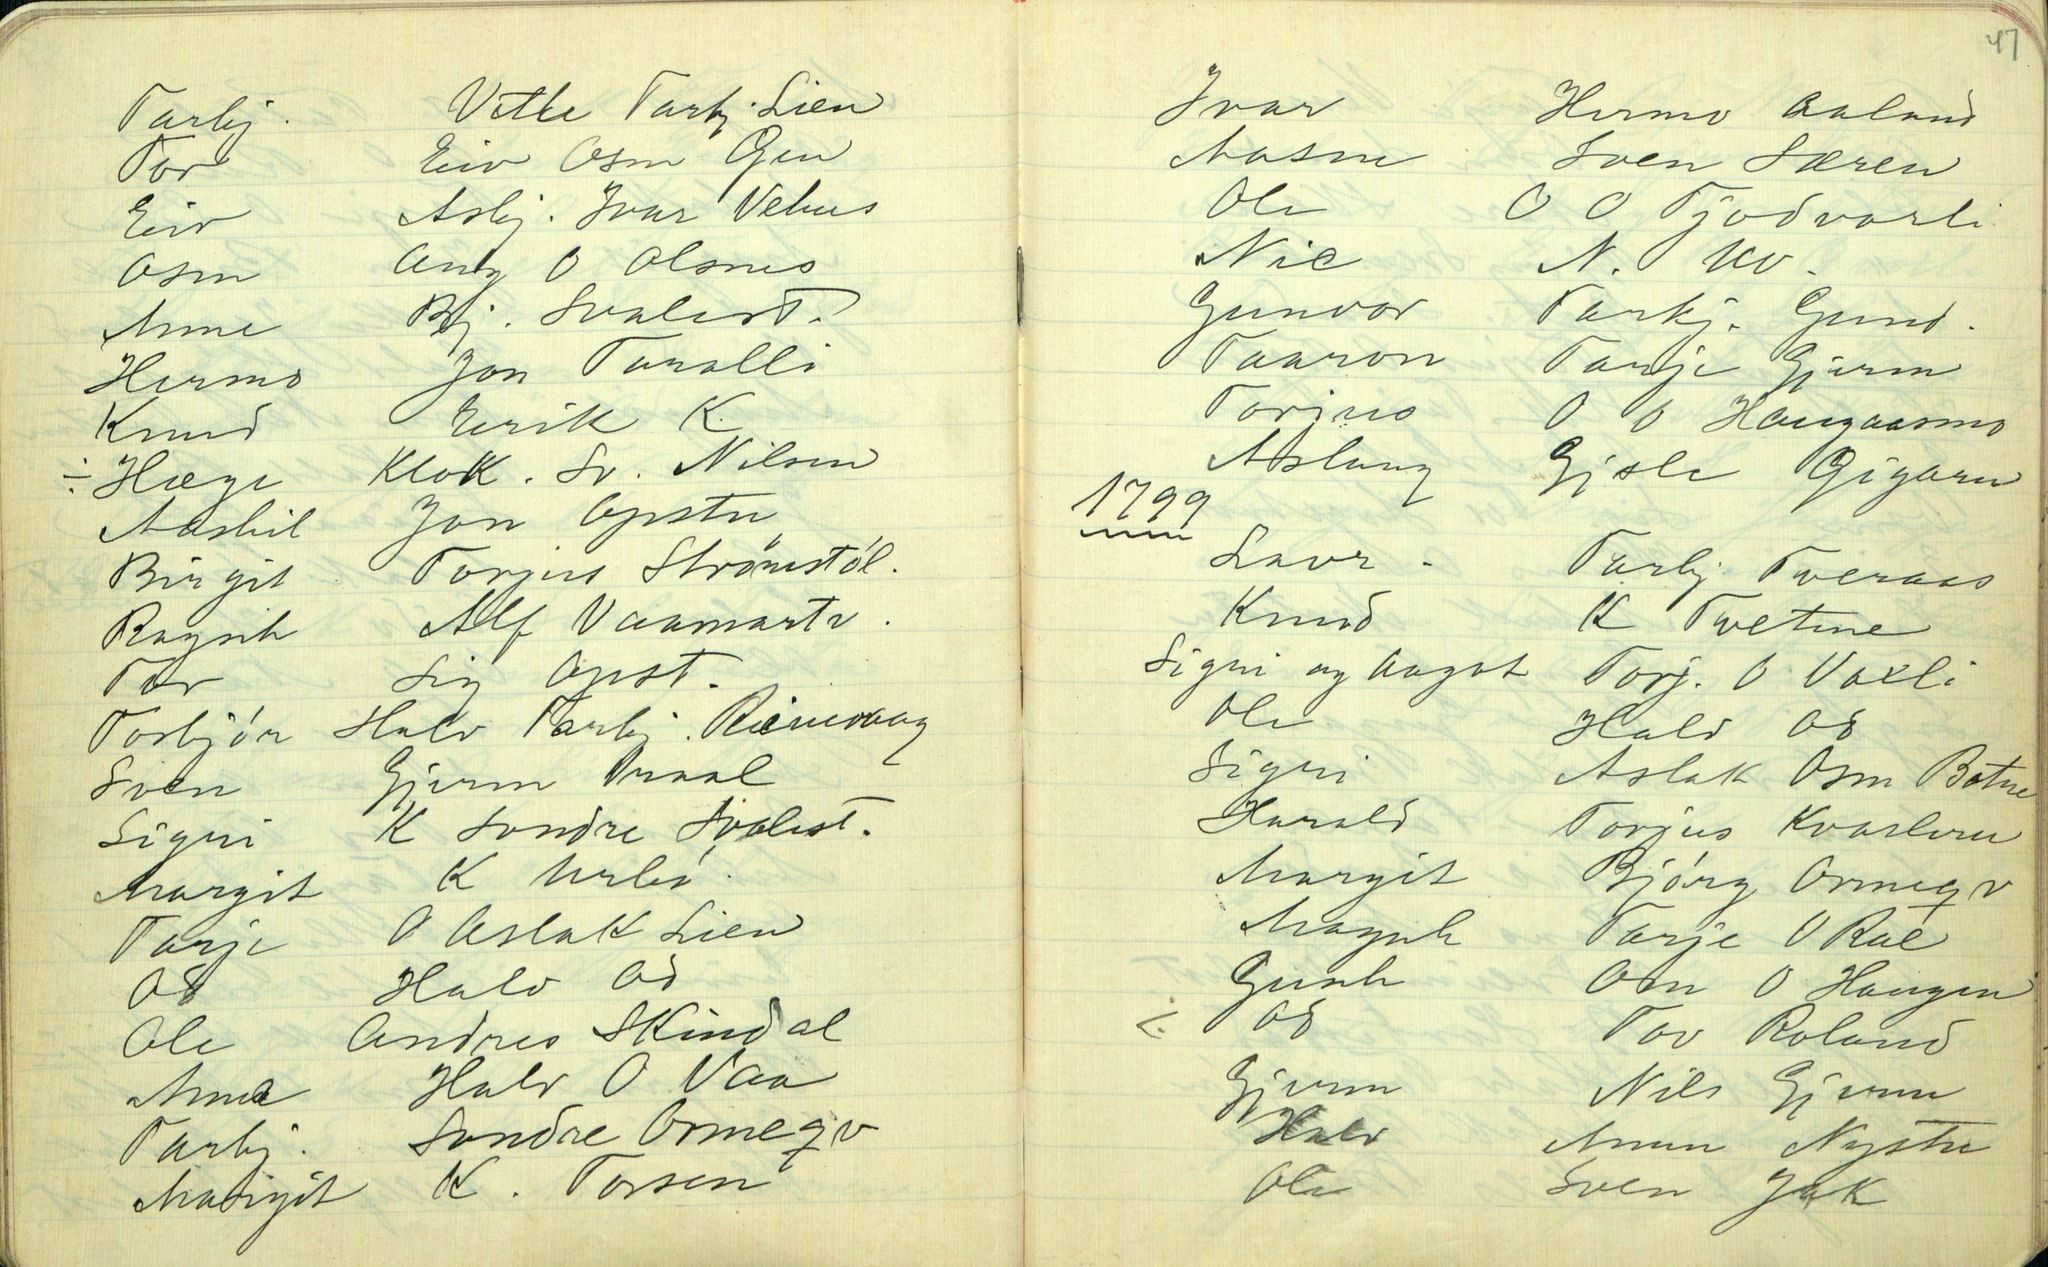 Tarbj. Vetle Tarbj. Lien
Tor Eiv Osm Gen
Eiv Asbj. Ivar Vehus
Osm Ang O Olsnes
Anne Bj. Svalest.
Hermo Jon Turalli
Knud Eirik K.
÷ Hæge Klok. Sv. Nilsen
Aashil Jon Opstu
Birgit Torjus Strömstól.
Ragnh Alf Vaamartv.
Tor Sig Opst.
Torbjór Halv Tarbj. Rinevaag
Sven Gjerm Praal
Signi K Sondre Svalest.
Margit K Urbó
Tarje O Aslak Lien
Od Halv Od
Ole Andres Skindal
Anne Halv O Vaa
Tarbj. Sondre Ormeqv
Margit K. Torsen
47
Ivar Hermo Aaland
Aasne Sven Særen
Ole O O Tjodvarli
Nic N. Uv.
Gunvor Tarkj. Gund.
Taaron Tarje Gjerm
Torjus O O Haugaasmo
Aslaug Gjsle Gigarn
1799
Lavr. Tarbj Tveraas
Knud K Tvetene
Signi og Aagot Torj. O Vaxli
Ole Halv Od
Signi Aslak Osm Botne
Harald Torjus Kvasleru
Margit Bjórg Ormeqv
Magnh Tarje O Rae
Gunh Om O Haugen
÷ Od Tov Roland
Gjerm Nils Gjerm
Halv Amun Nystu
Ole Sven Jak